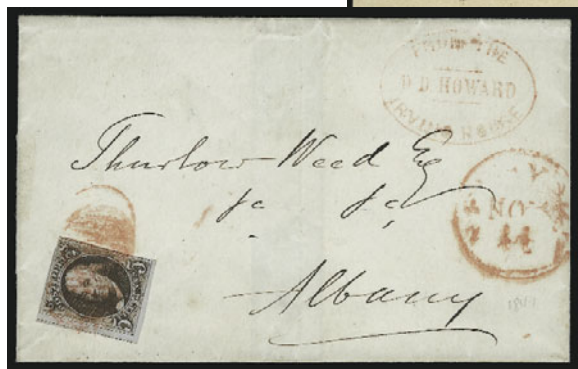 FROM THE
D D HOWARD
IRVING HOUSE
Thurlow Weed Esq
&c &c
Albany
NOV
14
5
5